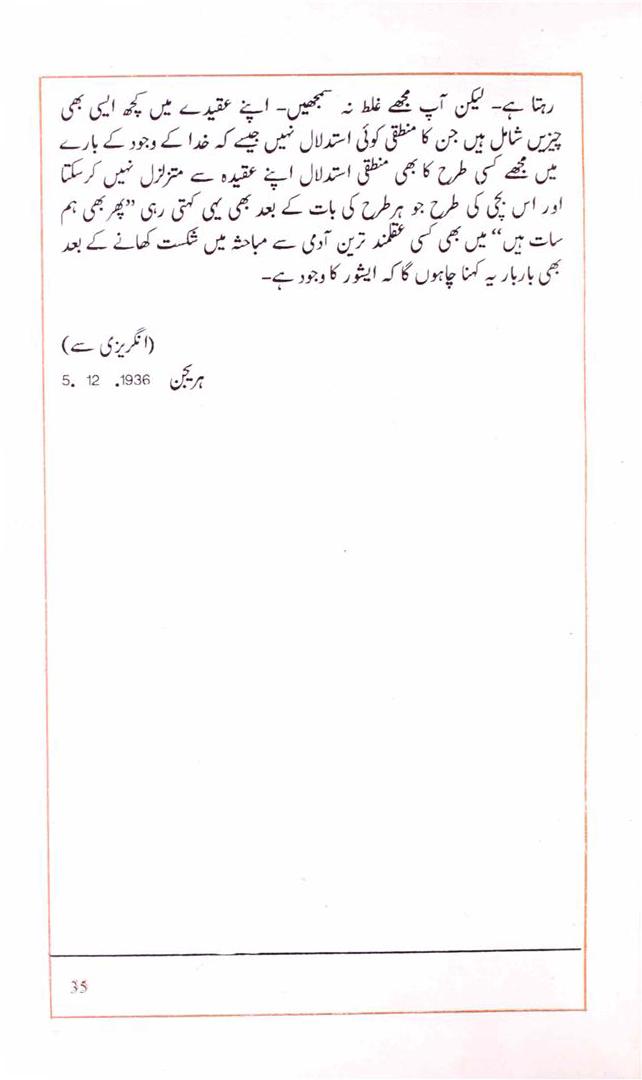 رہتا ہے۔ لیکن آپ مجھے غلط نہ سمجھیں۔ اپنے عقیدے میں کچھ ایسی بھی
چیزیں شامل ہیں جن کا منطقی کوئی استدلال نہیں جیسے کہ خدا کے وجود کے بارے
میں مجھے کسی طرح کا بھی منطقی استدلال اپنے عقیدہ سے متزلزل نہیں کرسکتا
اور اس بچی کی طرح جو ہر طرح کی بات کے بعد بھی یہی کہتی رہی ”پھر بھی ہم
سات ہیں“ میں بھی کسی عقلمند ترین آدمی سے مباحثہ میں شکست کھانے کے بعد
بھی باربار یہ کہنا چاہوں گا کہ ایشور کا وجود ہے۔
(انگریزی سے)
ہریجن 5. 12 .1936
35